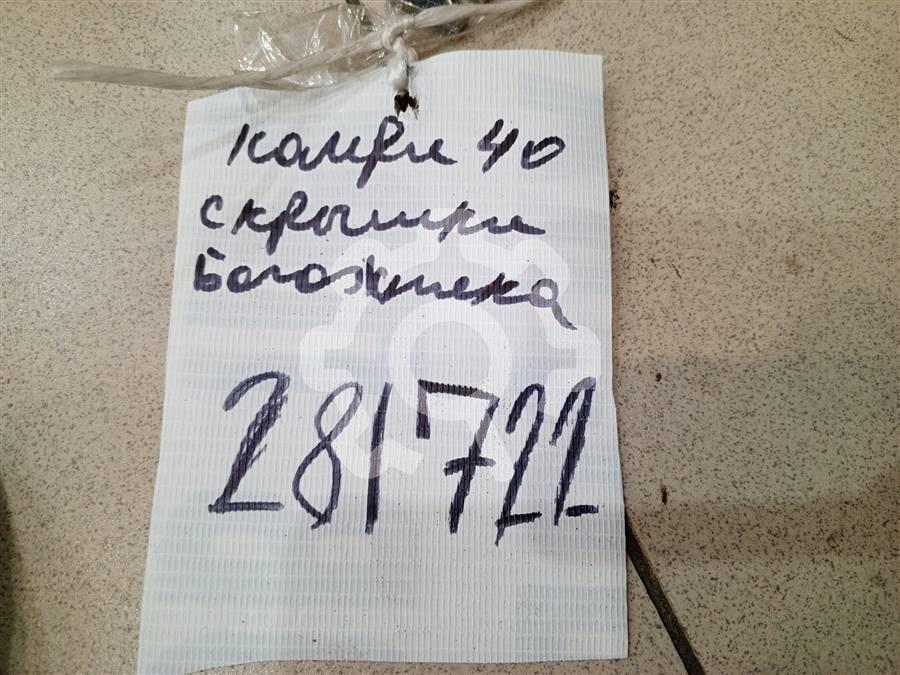 камри 40
с крышки
Богожника
281722